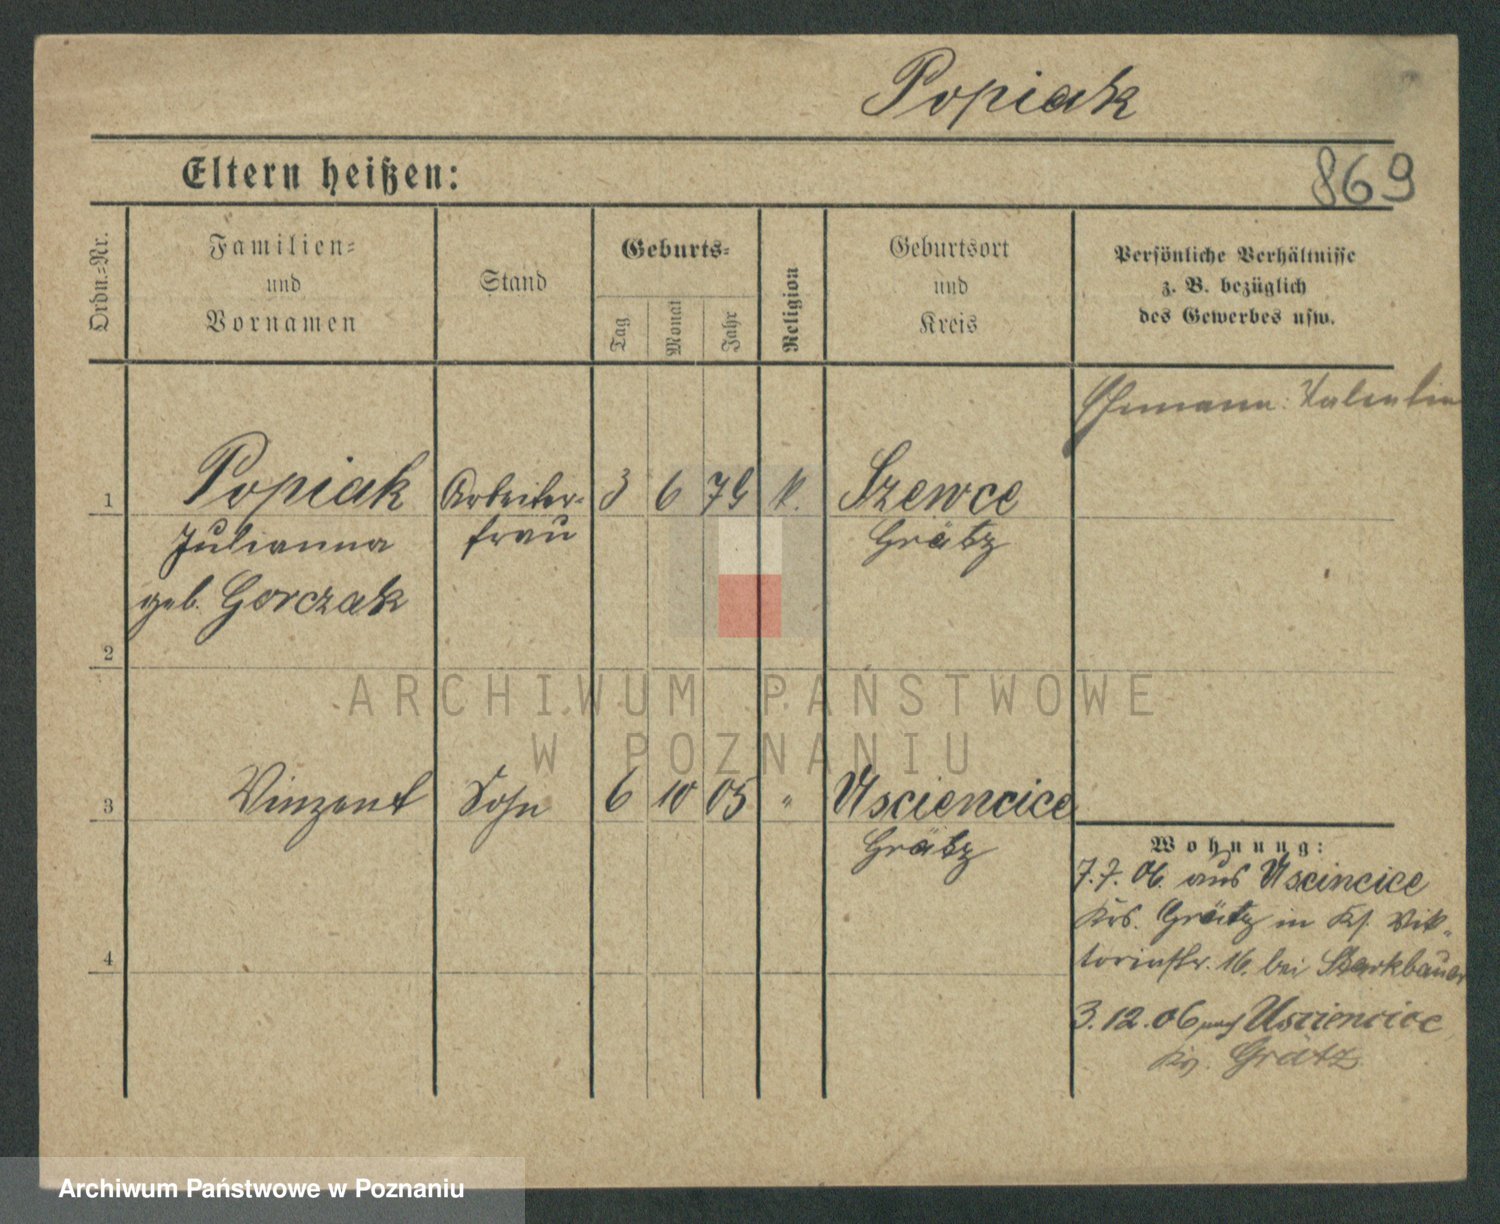 Popiak
869
Eltern heißen:
Ordn.-Nr.
Familien-
und
Vornamen
Stand
Geburts-
Tag
Monat
Jahr
Religion
Geburtsort
und
Kreis
Persönliche Verhältnisse
z. B. bezüglich
des Gewerbes usw.
Ehemann: Valentin
1 Popiak Arbeiter- 3 6 79 k. Szewce
Julianna frau Grätz
geb. Gorczak
2
3 Vinzent Sohn 6 10 05 " Usciencice
Grätz
4
Wohnung:
7.7.06. aus Uscincice
Krs. Grätz in Ks. Vik-
toriastr. 16. bei
3.12.06 nach Usciencice
Kr. Grätz
ARCHIWUM PAŃSTWOWE
W POZNANIU
Archiwum Państwowe w Poznaniu